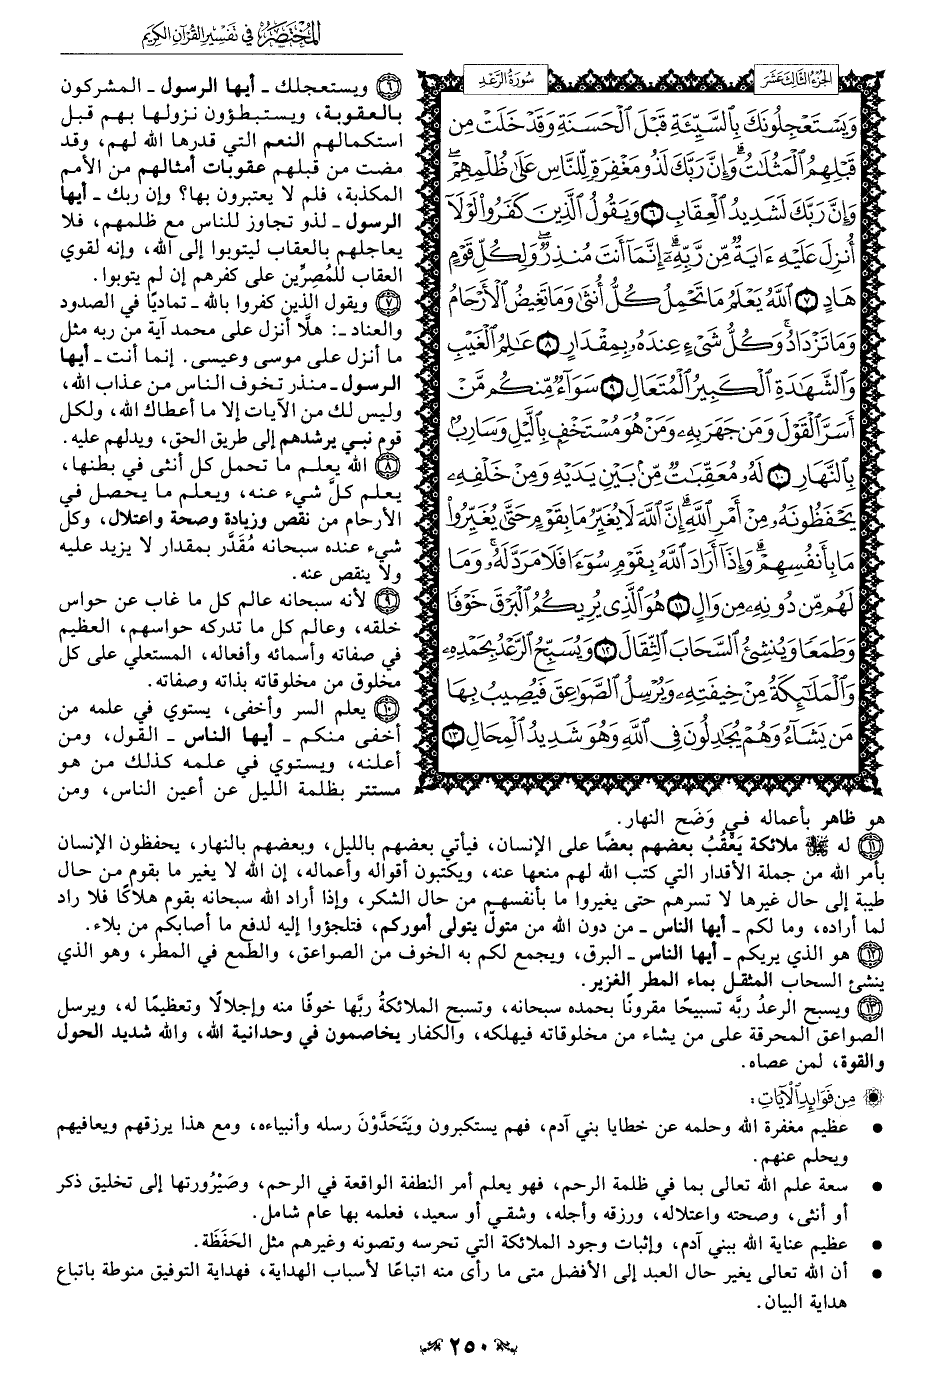 المُخْتَصَرُ فِي تَفْسِيرِ القُرْآنِ الكَرِيمِ
الجُزْءُ الثَّالِثَ عَشَرَ
سُورَةُ الرَّعْدِ
وَيَسْتَعْجِلُونَكَ بِٱلسَّيِّئَةِ قَبْلَ ٱلْحَسَنَةِ وَقَدْ خَلَتْ مِن
قَبْلِهِمُ ٱلْمَثُلَٰتُۗ وَإِنَّ رَبَّكَ لَذُو مَغْفِرَةٖ لِّلنَّاسِ عَلَىٰ ظُلْمِهِمْۖ
وَإِنَّ رَبَّكَ لَشَدِيدُ ٱلْعِقَابِ ٦ وَيَقُولُ ٱلَّذِينَ كَفَرُواْ لَوْلَآ
أُنزِلَ عَلَيْهِ ءَايَةٞ مِّن رَّبِّهِۦٓۗ إِنَّمَآ أَنتَ مُنذِرٞۖ وَلِكُلِّ قَوْمٍ
هَادٍ ٧ ٱللَّهُ يَعْلَمُ مَا تَحْمِلُ كُلُّ أُنثَىٰ وَمَا تَغِيضُ ٱلْأَرْحَامُ
وَمَا تَزْدَادُۖ وَكُلُّ شَيْءٍ عِندَهُۥ بِمِقْدَارٍ ٨ عَٰلِمُ ٱلْغَيْبِ
وَٱلشَّهَٰدَةِ ٱلْكَبِيرُ ٱلْمُتَعَالِ ٩ سَوَآءٞ مِّنكُم مَّنْ
أَسَرَّ ٱلْقَوْلَ وَمَن جَهَرَ بِهِۦ وَمَنْ هُوَ مُسْتَخْفِۭ بِٱلَّيْلِ وَسَارِبُۢ
بِٱلنَّهَارِ ١٠ لَهُۥ مُعَقِّبَٰتٞ مِّنۢ بَيْنِ يَدَيْهِ وَمِنْ خَلْفِهِۦ
يَحْفَظُونَهُۥ مِنْ أَمْرِ ٱللَّهِۗ إِنَّ ٱللَّهَ لَا يُغَيِّرُ مَا بِقَوْمٍ حَتَّىٰ يُغَيِّرُواْ
مَا بِأَنفُسِهِمْۗ وَإِذَآ أَرَادَ ٱللَّهُ بِقَوْمٖ سُوٓءٗا فَلَا مَرَدَّ لَهُۥۚ وَمَا
لَهُم مِّن دُونِهِۦ مِن وَالٍ ١١ هُوَ ٱلَّذِي يُرِيكُمُ ٱلْبَرْقَ خَوْفٗا
وَطَمَعٗا وَيُنشِئُ ٱلسَّحَابَ ٱلثِّقَالَ ١٢ وَيُسَبِّحُ ٱلرَّعْدُ بِحَمْدِهِۦ
وَٱلْمَلَٰٓئِكَةُ مِنْ خِيفَتِهِۦ وَيُرْسِلُ ٱلصَّوَٰعِقَ فَيُصِيبُ بِهَا
مَن يَشَآءُ وَهُمْ يُجَٰدِلُونَ فِي ٱللَّهِ وَهُوَ شَدِيدُ ٱلْمِحَالِ ١٣
٦ ويستعجلك ـ أيها الرسول ـ المشركون
بالعقوبة، ويستبطؤون نزولها بهم قبل
استكمالهم النعم التي قدرها الله لهم، وقد
مضت من قبلهم عقوبات أمثالهم من الأمم
المكذبة، فلم لا يعتبرون بها؟ وإن ربك ـ أيها
الرسول ـ لذو تجاوز للناس مع ظلمهم، فلا
يعاجلهم بالعقاب ليتوبوا إلى الله، وإنه لقوي
العقاب للمُصِرِّين على كفرهم إن لم يتوبوا.
٧ ويقول الذين كفروا بالله ـ تماديًا في الصدود
والعناد ـ: هلَّا أنزل على محمد آية من ربه مثل
ما أنزل على موسى وعيسى. إنما أنت ـ أيها
الرسول ـ منذر تخوف الناس من عذاب الله،
وليس لك من الآيات إلا ما أعطاك الله، ولكل
قوم نبي يرشدهم إلى طريق الحق، ويدلهم عليه.
٨ الله يعلم ما تحمل كل أنثى في بطنها،
يعلم كلَّ شيء عنه، ويعلم ما يحصل في
الأرحام من نقص وزيادة وصحة واعتلال، وكل
شيء عنده سبحانه مُقَدَّر بمقدار لا يزيد عليه
ولا ينقص عنه.
٩ لأنه سبحانه عالم كل ما غاب عن حواس
خلقه، وعالم كل ما تدركه حواسهم، العظيم
في صفاته وأسمائه وأفعاله، المستعلي على كل
مخلوق من مخلوقاته بذاته وصفاته.
١٠ يعلم السر وأخفى، يستوي في علمه من
أخفى منكم ـ أيها الناس ـ القول، ومن
أعلنه، ويستوي في علمه كذلك من هو
مستتر بظلمة الليل عن أعين الناس، ومن
هو ظاهر بأعماله في وَضَح النهار.
١١ له ﷻ ملائكة يَعْقُبُ بعضهم بعضًا على الإنسان، فيأتي بعضهم بالليل، وبعضهم بالنهار، يحفظون الإنسان
بأمر الله من جملة الأقدار التي كتب الله لهم منعها عنه، ويكتبون أقواله وأعماله، إن الله لا يغير ما بقوم من حال
طيبة إلى حال غيرها لا تسرهم حتى يغيروا ما بأنفسهم من حال الشكر، وإذا أراد الله سبحانه بقوم هلاكًا فلا راد
لما أراده، وما لكم ـ أيها الناس ـ من دون الله من متولٍّ يتولى أموركم، فتلجؤوا إليه لدفع ما أصابكم من بلاء.
١٢ هو الذي يريكم ـ أيها الناس ـ البرق، ويجمع لكم به الخوف من الصواعق، والطمع في المطر، وهو الذي
ينشئ السحاب المثقل بماء المطر الغزير.
١٣ ويسبح الرعدُ ربَّه تسبيحًا مقرونًا بحمده سبحانه، وتسبح الملائكةُ ربَّها خوفًا منه وإجلالًا وتعظيمًا له، ويرسل
الصواعق المحرقة على من يشاء من مخلوقاته فيهلكه، والكفار يخاصمون في وحدانية الله، والله شديد الحول
والقوة، لمن عصاه.
مِن فَوَائِدِ الآيَاتِ:
• عظيم مغفرة الله وحلمه عن خطايا بني آدم، فهم يستكبرون ويَتَحَدَّوْنَ رسله وأنبياءه، ومع هذا يرزقهم ويعافيهم
ويحلم عنهم.
• سعة علم الله تعالى بما في ظلمة الرحم، فهو يعلم أمر النطفة الواقعة في الرحم، وصَيْرُورتها إلى تخليق ذكر
أو أنثى، وصحته واعتلاله، ورزقه وأجله، وشقي أو سعيد، فعلمه بها عام شامل.
• عظيم عناية الله ببني آدم، وإثبات وجود الملائكة التي تحرسه وتصونه وغيرهم مثل الحَفَظَة.
• أن الله تعالى يغير حال العبد إلى الأفضل متى ما رأى منه اتباعًا لأسباب الهداية، فهداية التوفيق منوطة باتباع
هداية البيان.
٢٥٠